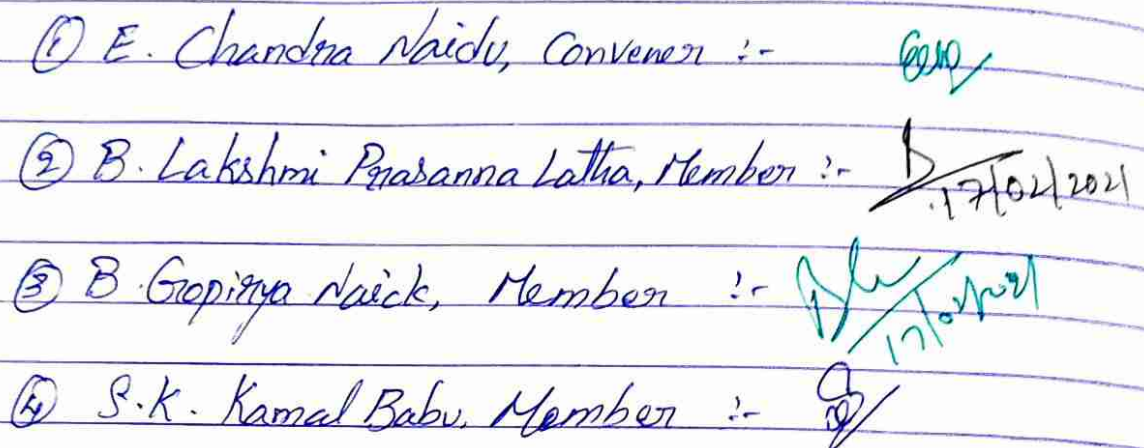 ① E. Chandra Naidu, Convener :-
② B. Lakshmi Prasanna Latha, Member :- 17/02/2021
③ B. Gopirya Naick, Member :- 17/02/2021
④ S.K. Kamal Babu, Member :-